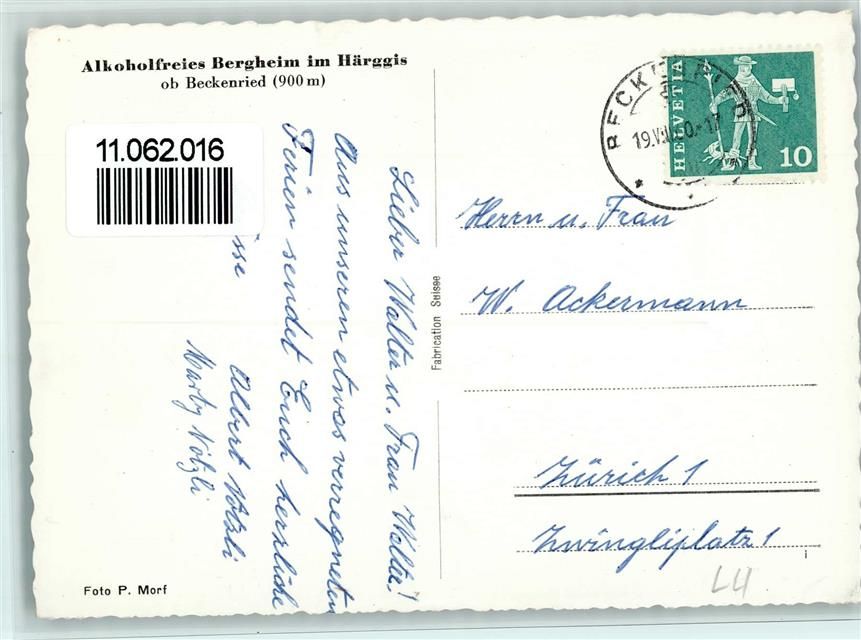 Alkoholfreies Bergheim im Härggis
ob Beckenried (900 m)
11.062.016
Lieber Walter u. Frau Walter!
Aus unseren etwas verregneten
Ferien sendet Euch herzliche
sse
Albert Nötzli
Marty Nötzli
Foto P. Morf
Fabrication Suisse
BECKENRIED
19.VII.60.-17
HELVETIA
10
Herrn u. Frau
W. Ackermann
Zürich 1
Zwingliplatz 1
LU